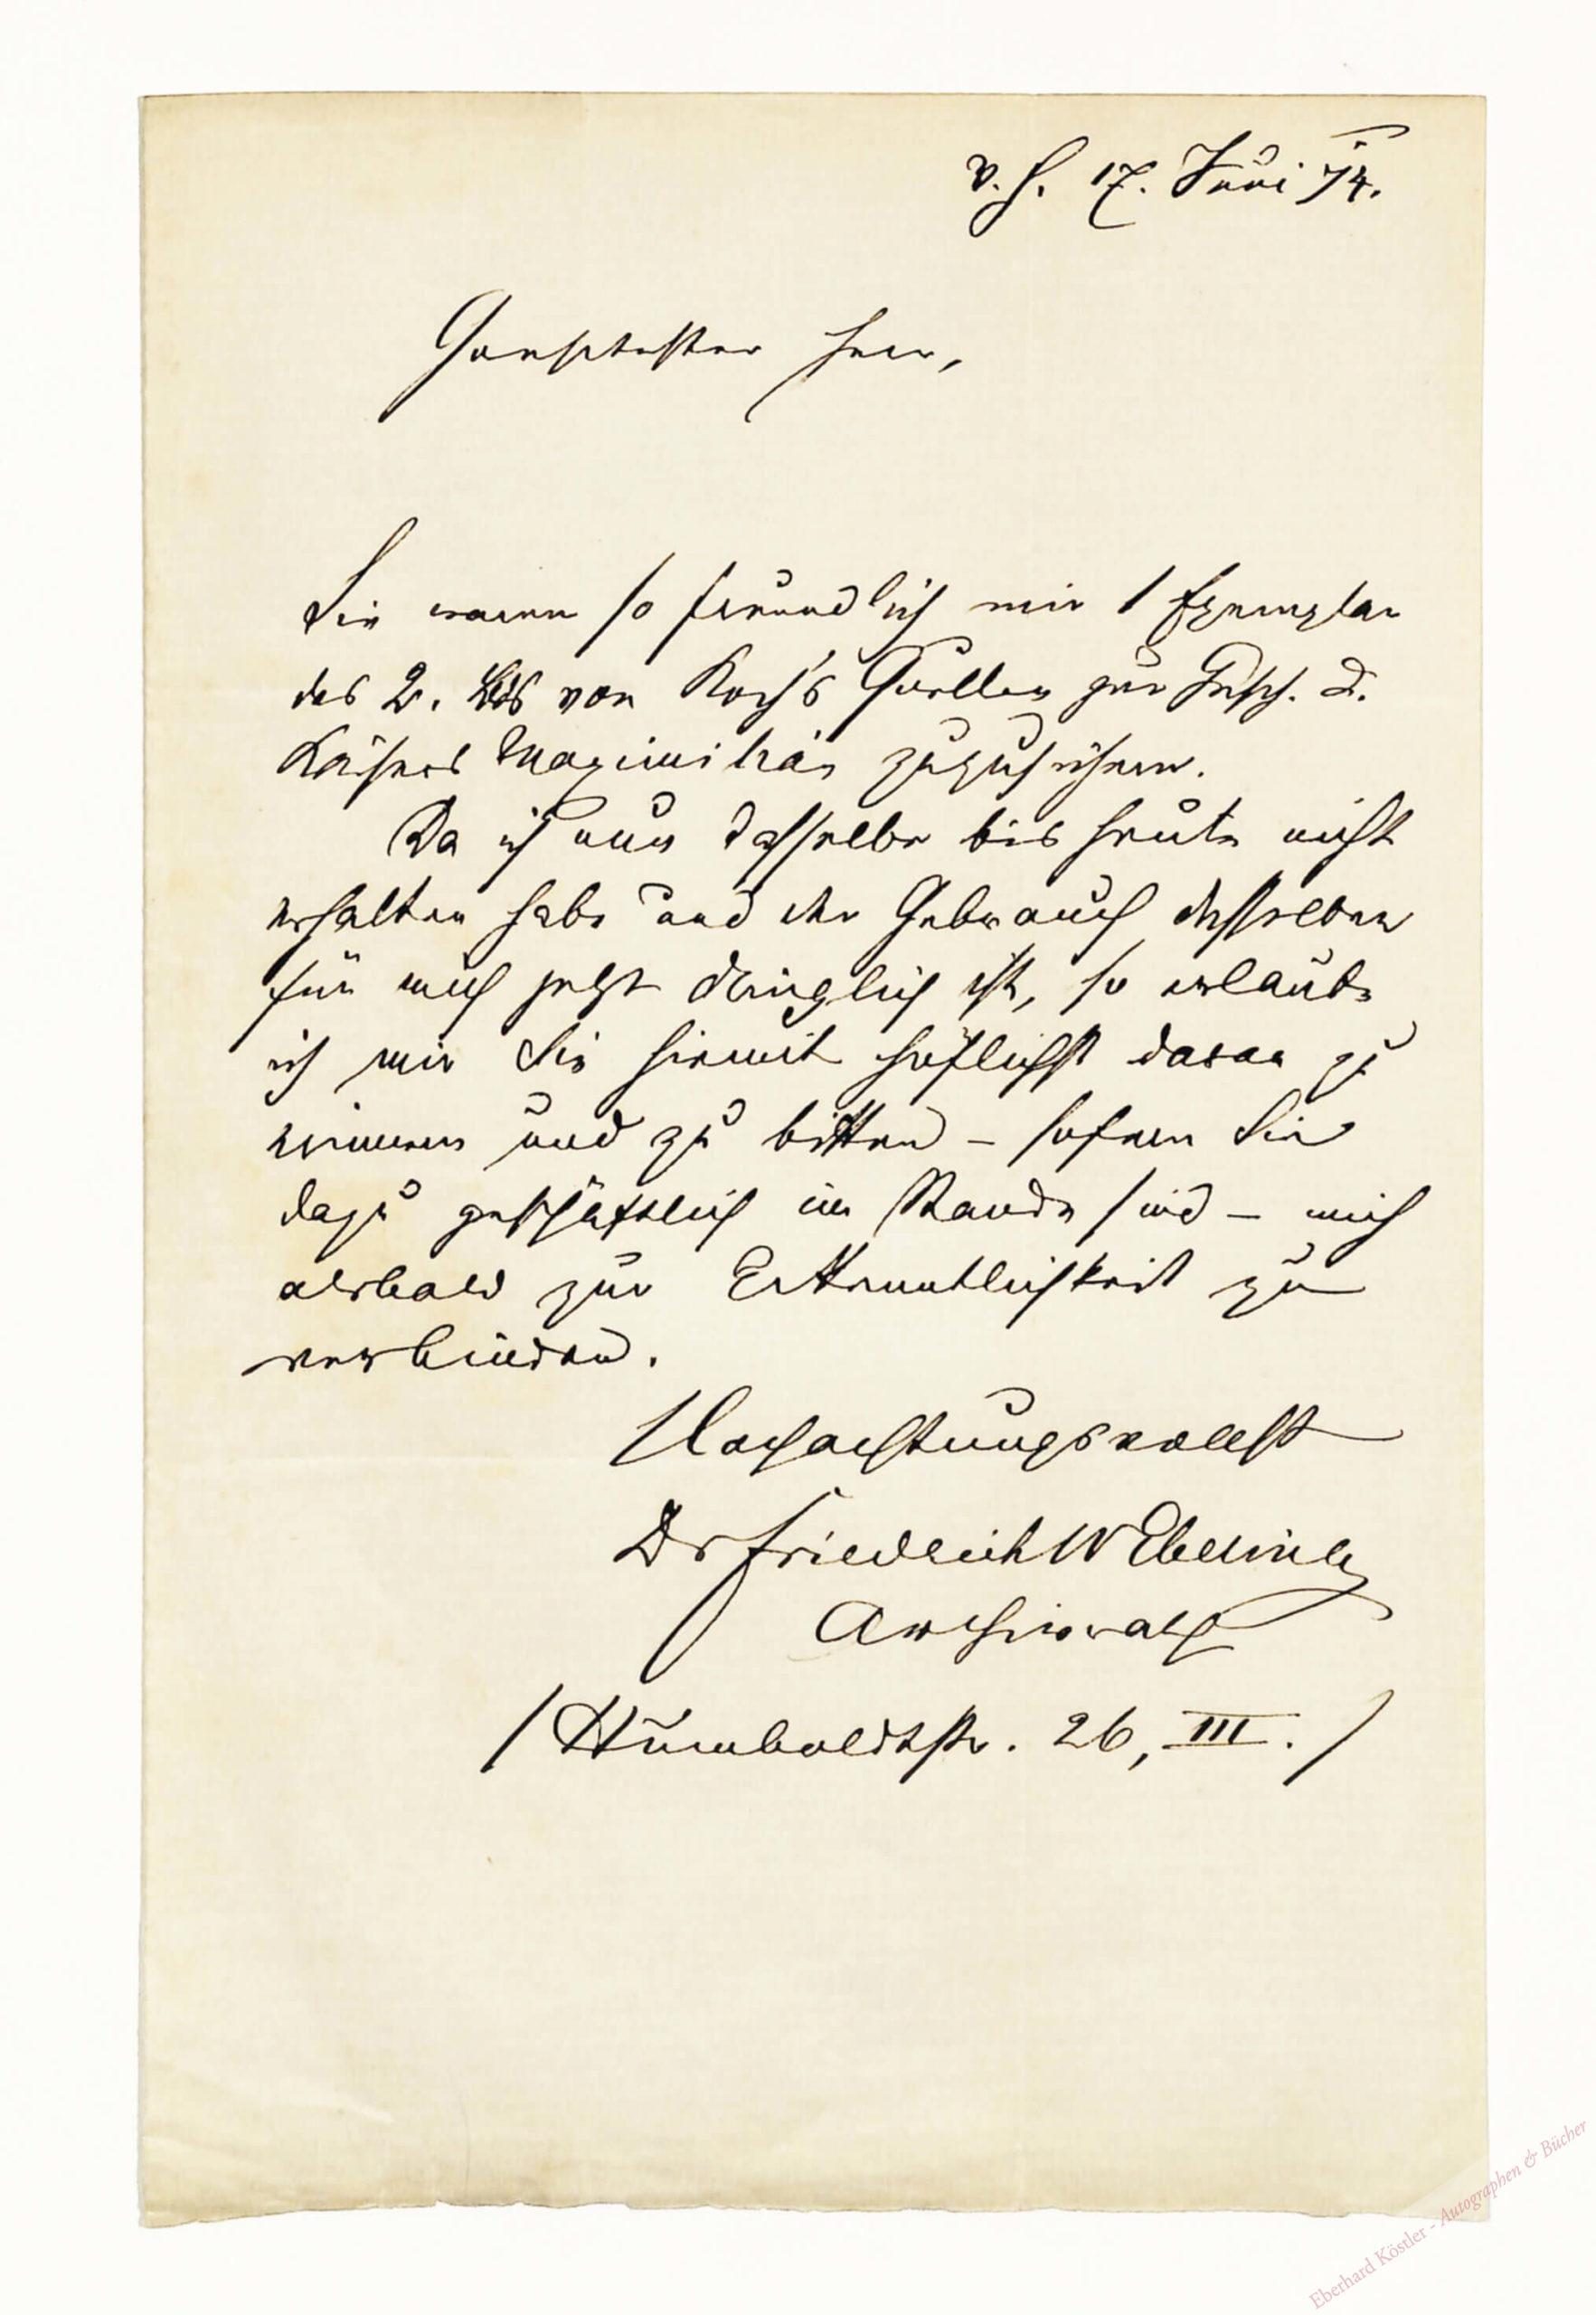 v. H. 17. Juni 74.
Geehrtester Herr,
Sie waren so freundlich mir 1 Exemplar
des 2. Bds von Koch's Quellen zur Gesch. d.
Kaisers Maximilian zuzusichern.
Da ich nun dasselbe bis heute nicht
erhalten habe und der Gebrauch desselben
für mich jetzt dringlich ist, so erlaube
ich mir Sie hiemit höflichst daran zu
erinnern und zu bitten – sofern Sie
dazu geschäftlich im Stande sind – mich
alsbald zur Erkenntlichkeit zu
verbinden.
Hochachtungsvollst
Dr Friedrich W Ebeling
/ Humboldtstr. 26, III. /
Eberhard Köstler - Autographen & Bücher